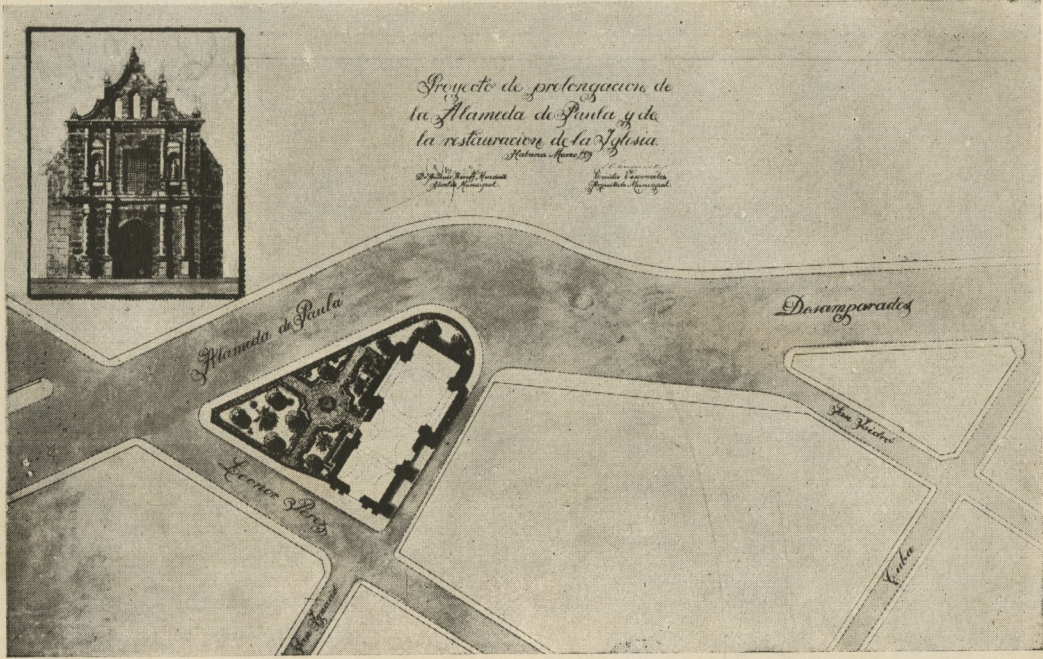 Proyecto de prolongacion de
la Alameda de Paula y de
la restauracion de la Yglesia.
Habana Marzo
Alcalde Municipal.
Emilio Vasconcelos
Arquitecto Municipal.
Alameda de Paula
Desamparados
San Ysidro
Leonor Perez
Cuba
San Ygnacio